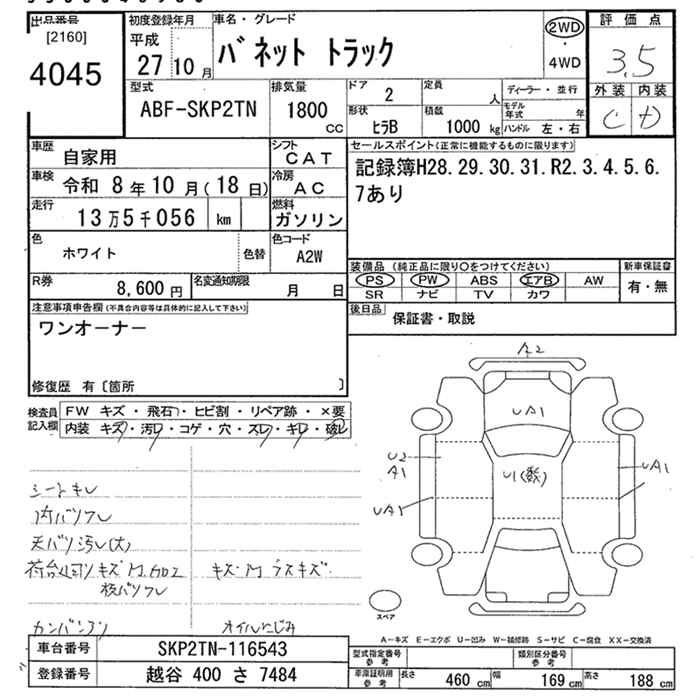 出品番号
[2160]
4045
初度登録年月
平成
27 10 月
車名・グレード
バネット トラック
2WD
・
4WD
評価点
3.5
型式
ABF-SKP2TN
排気量
1800
cc
ドア
2
定員
人
形状
ヒラB
積載
1000 kg
ディーラー・並行
モデル年式 年
ハンドル 左・右
外装 内装
C D
車歴
自家用
シフト
CAT
車検
令和 8 年 10 月 (18 日)
冷房
AC
走行
13万5千056 km
燃料
ガソリン
色
ホワイト
色替
色コード
A2W
R券
8,600 円
名変通知期限
月 日
セールスポイント(正常に機能するものに限ります)
記録簿H28.29.30.31.R2.3.4.5.6.
7あり
装備品(純正品に限り○をつけてください)
PS PW ABS エアB AW
SR ナビ TV カワ
新車保証書
有・無
後日品
保証書・取説
注意事項申告欄(不具合内容等は具体的に記入して下さい)
ワンオーナー
修復歴 有〔箇所 〕
検査員記入欄
FW キズ・飛石・ヒビ割・リペア跡・×要
内装 キズ・汚レ・コゲ・穴・スレ・キレ・破レ
シートキレ
内バリワレ
天バリ汚レ(大)
キズ・M ラスキズ
オイルにじみ
A2
UA1
U1(数)
U2
A1
UA1
UA1
スペア
A-キズ E-エクボ U-凹み W-補修跡 S-サビ C-腐食 XX-交換済
車台番号
SKP2TN-116543
登録番号
越谷 400 さ 7484
型式指定番号
参考
類別区分番号
参考
車庫証明用
参考
長さ 460 cm 幅 169 cm 高さ 188 cm